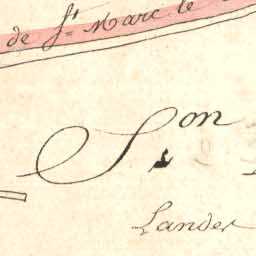 de St. Marc le
Son
Landes